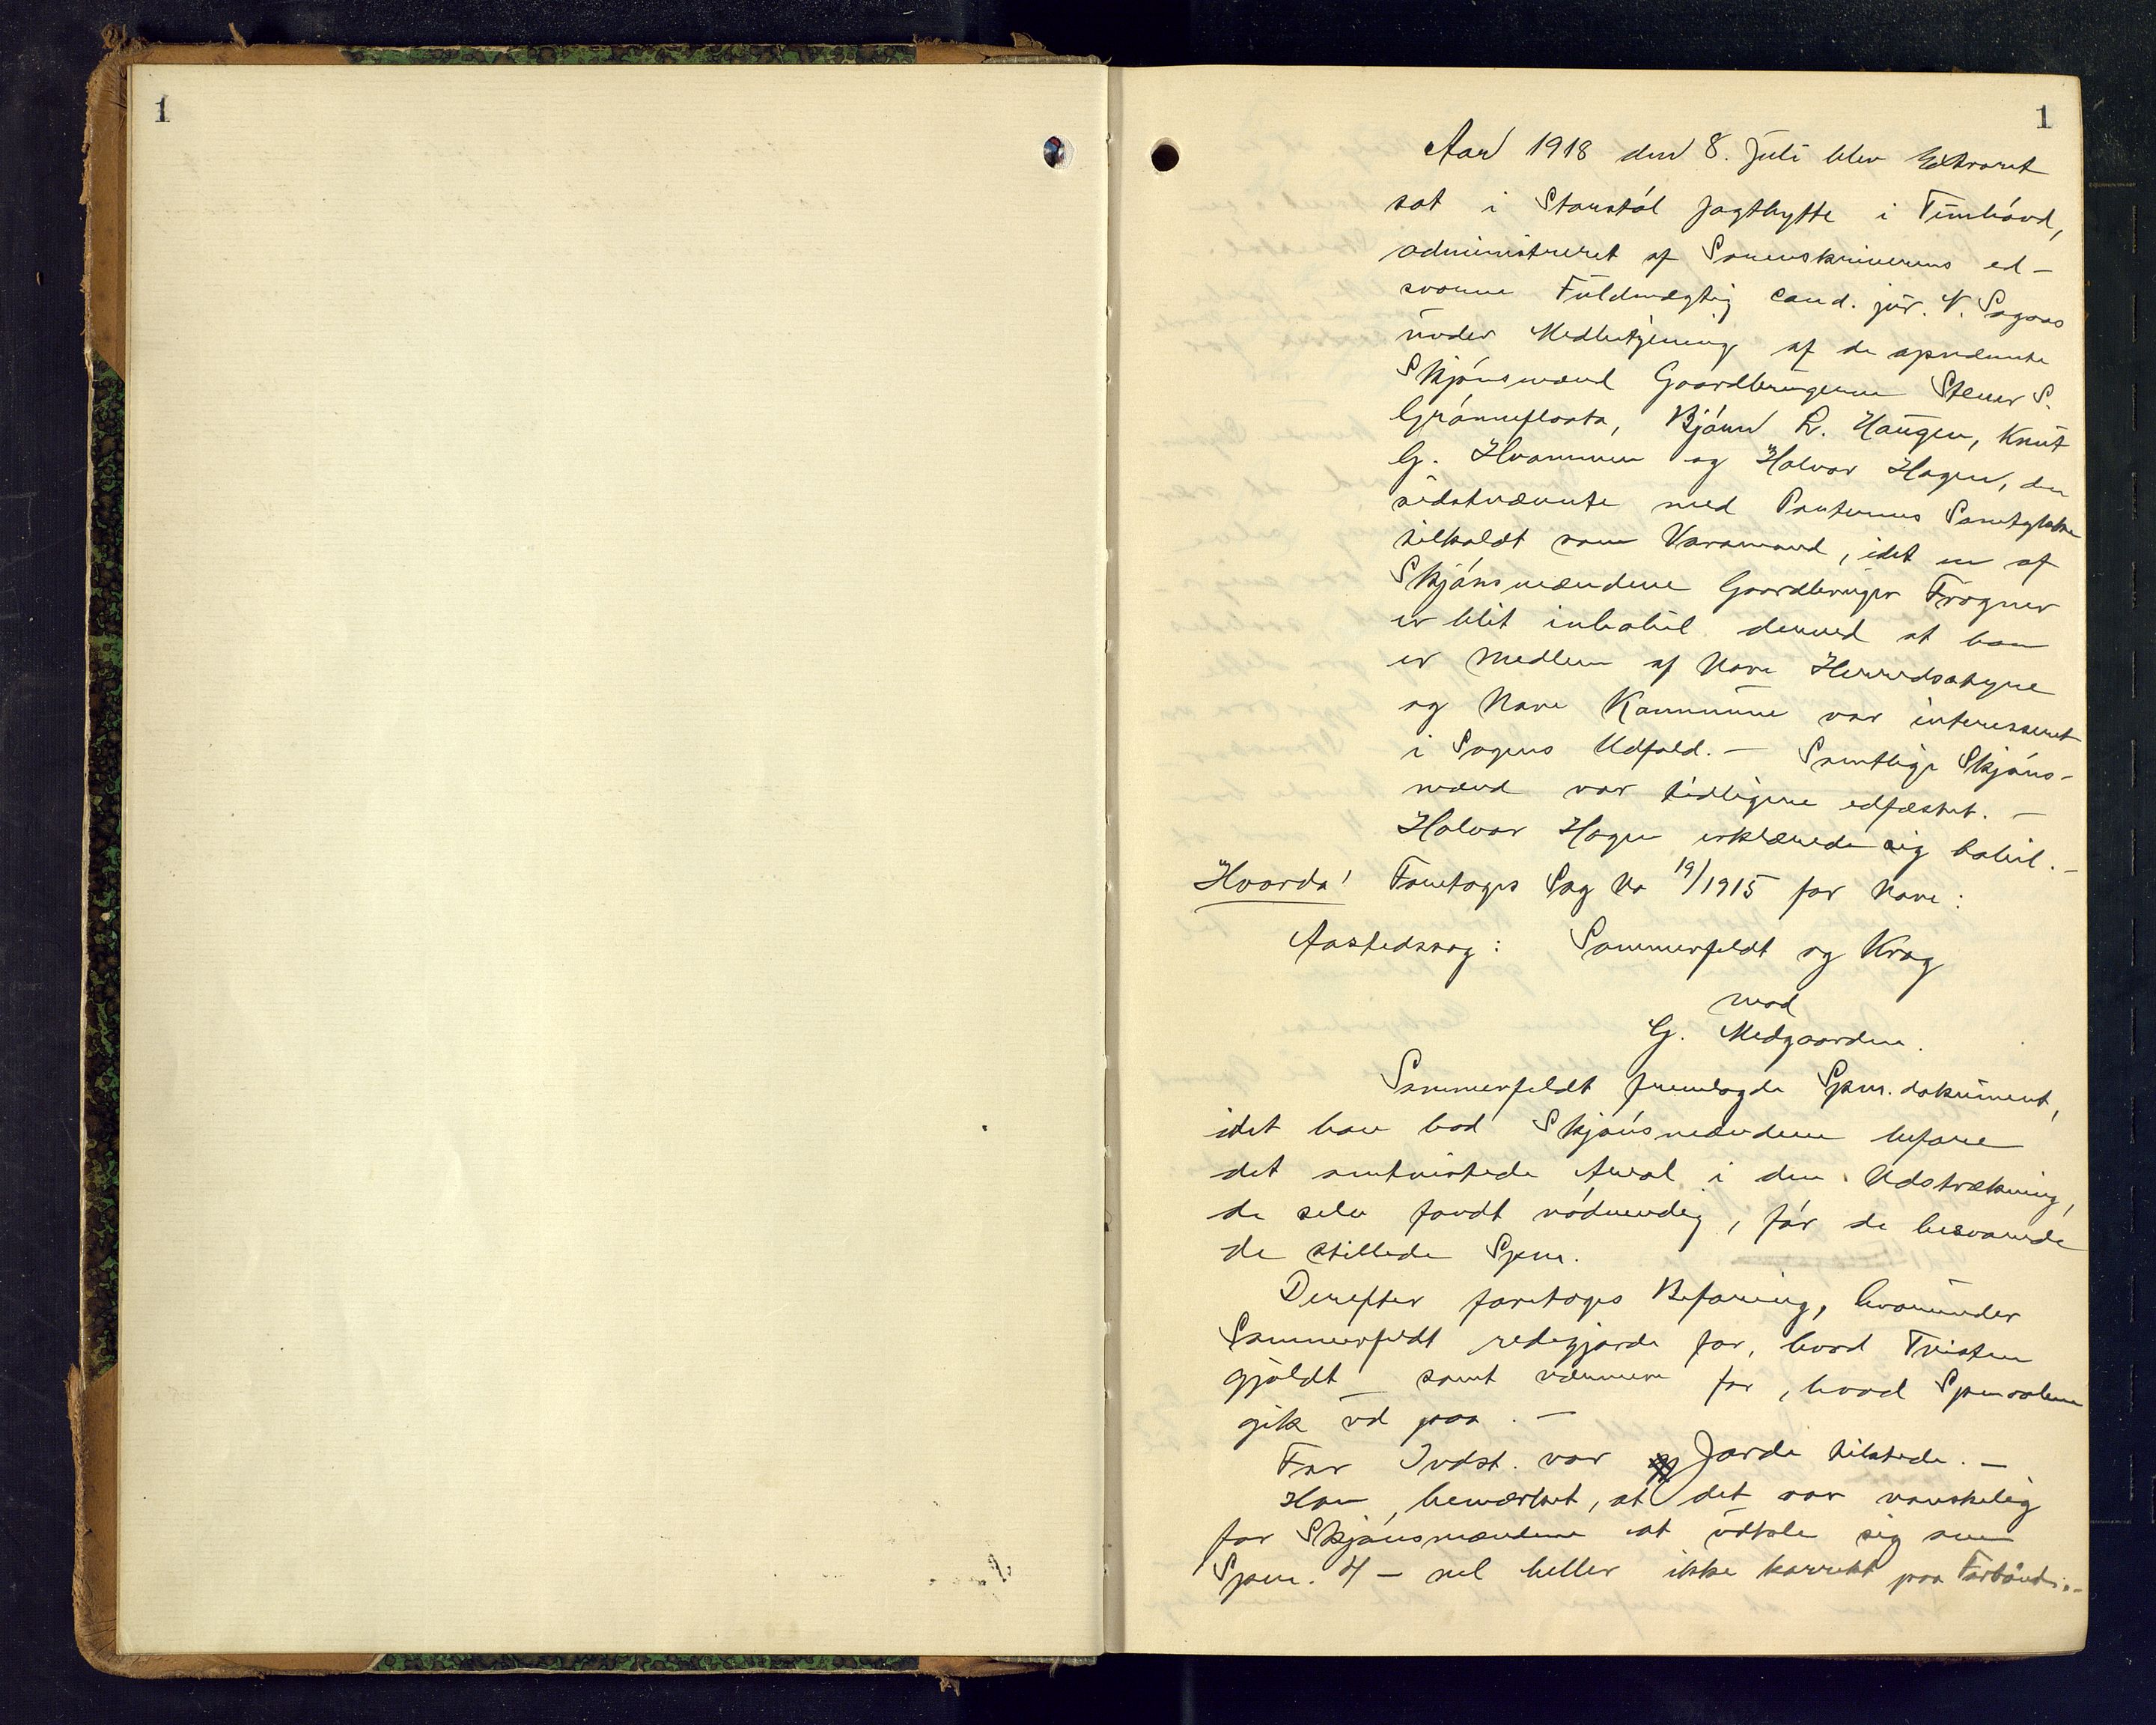 1
1
Aar 1918 den 8. Juli blev Extraret
sat i Starstøl Jagthytte i Timhøvd,
administreret af Sorenskriverens ed-
svorne Fuldmægtig cand. jur. N. Sagaas
under Medbetjening af de opnævnte
Skjønsmænd Gaardbrugerne Stener S.
Grønneflaata, Bjørn L. Haugen, Knut
G. Hvammen og Halvor Hagen, den
sidstnævnte med Parternes Samtykke
tilkaldt som Varamand, idet en af
Skjønsmændene Gaardbruger Frogner
er blit inhabil derved at han
er Medlem af Nore Herredsstyre
og Nore Kommune var interesseret
i Sagens Udfald. — Samtlige Skjøns-
mænd var tidligere edfæstet. —
Halvor Hagen erklærede sig habil. —
Hvorda! Foretoges Sag No 19/1915 for Nore:
Aastedssag: Sommerfeldt og Krag
mod
G. Medgaarden.
Sommerfeldt fremlagde Spm. dokument,
idet han bad Skjønsmændene befare
det omtvistede Areal i den Udstrækning,
de selv fandt nødvendig, før de besvarede
de stillede Spm.
Derefter foretoges Befaring, hvorunder
Sommerfeldt redegjorde for, hvad Tvisten
gjaldt — samt nærmere for, hvad Spmaalene
gik ud paa. —
For Indst. var Jorde tilstede. —
Han bemærket, at det var vanskelig
for Skjønsmændene at udtale sig om
Spm. 4 — vel heller ikke korrekt paa